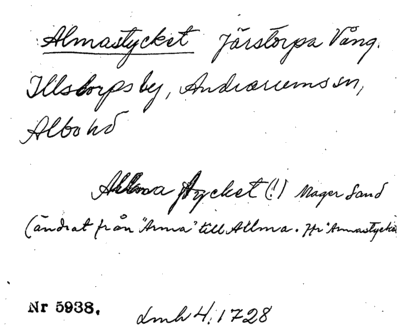 Almastycket Järstorpa Vång.
Illstorps by, Andrarums sn,
Albo hd
Allma stycket (!) Mager Sand
(ändrat från "Arma" till Allma. Jfr Armastycket
Nr 5938. dmh 4: 1728